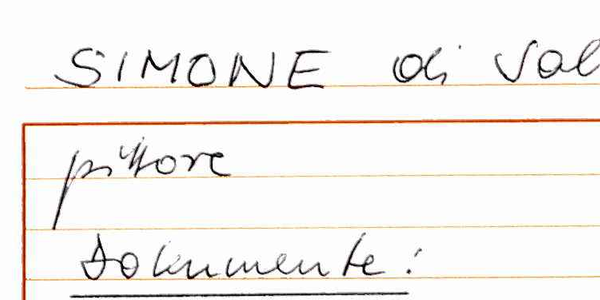 SIMONE di Sal
pittore
Dokumente: